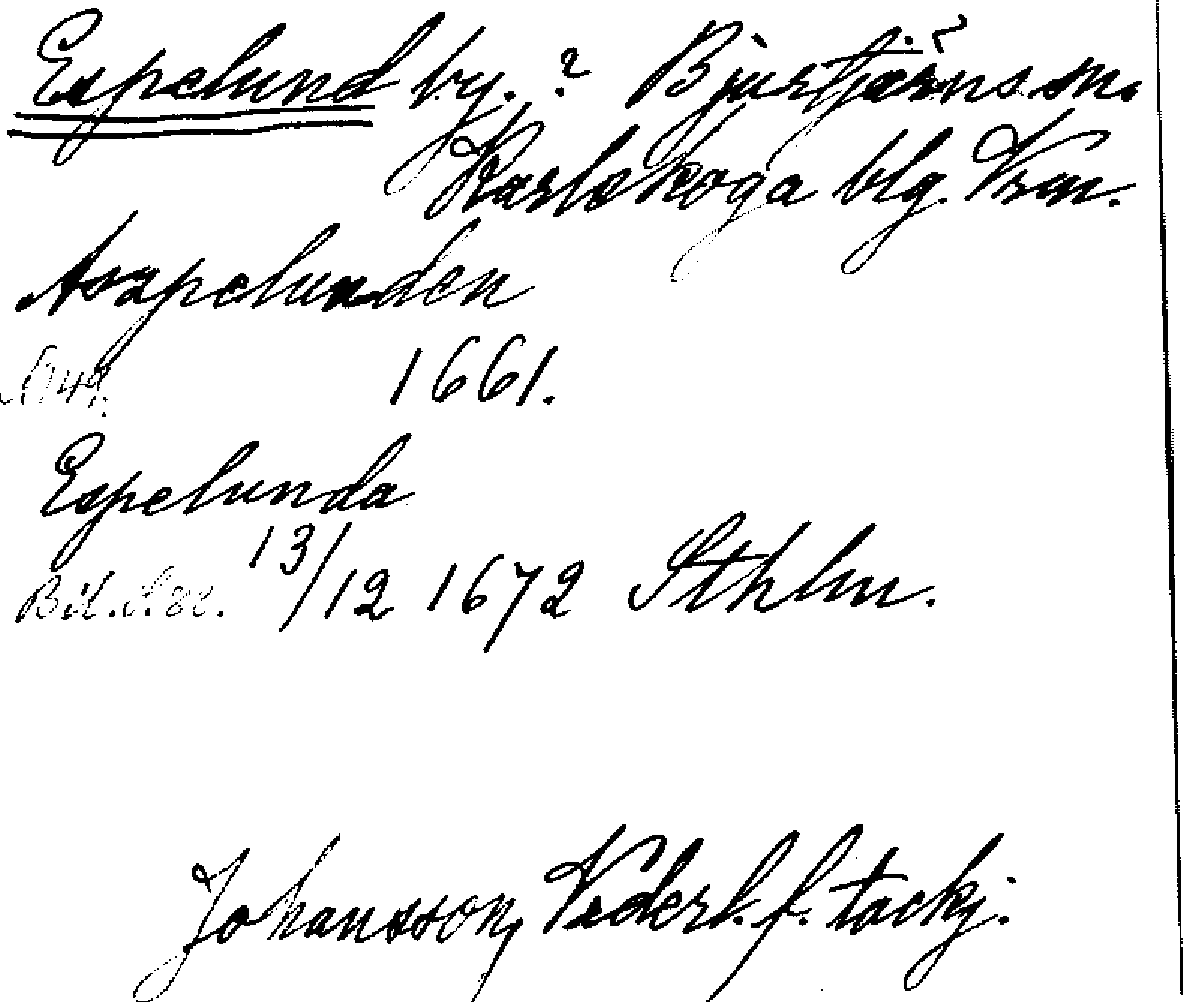 Espelund by. ? Bjurtjärns sn.
Karlskoga blg. Vrm.
Aszpelunden
1661.
Espelunda
13/12 1672 Sthlm.
Johansson, Vederl. f. tackj.